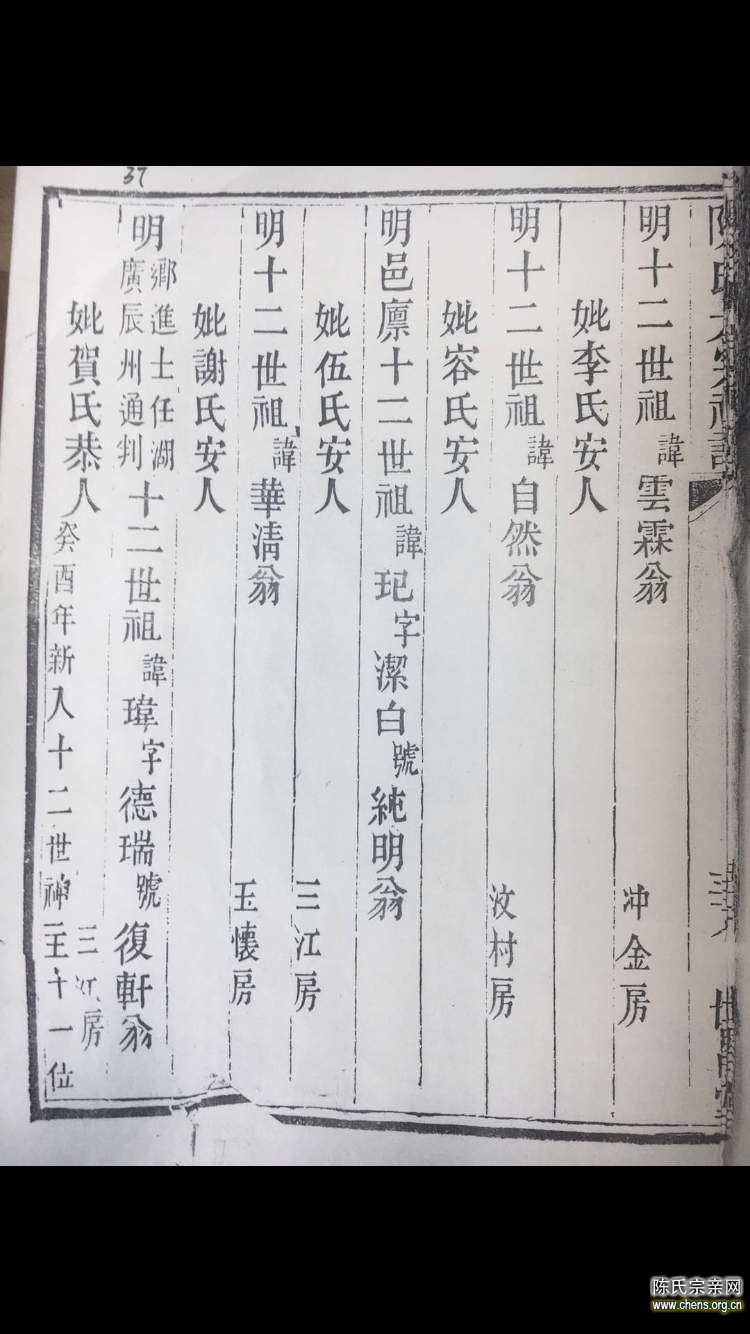 37
明十二世祖諱雲霖翁
妣李氏安人 冲金房
明十二世祖諱自然翁
妣容氏安人 汶村房
明邑廪十二世祖諱玘字潔白號純明翁
妣伍氏安人 三江房
明十二世祖諱華清翁
妣謝氏安人 玉懷房
明鄉進士任湖廣辰州通判十二世祖諱瑋字德瑞號復軒翁
妣賀氏恭人 三江房
癸酉年新入十二世神主十一位
陈氏宗亲网
www.chens.org.cn